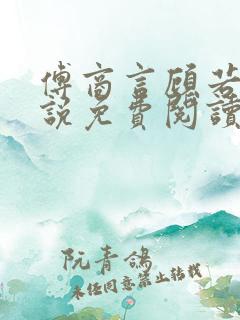 傅商言顾若
説免費閱讀
阮青鴿
未经同意禁止转载